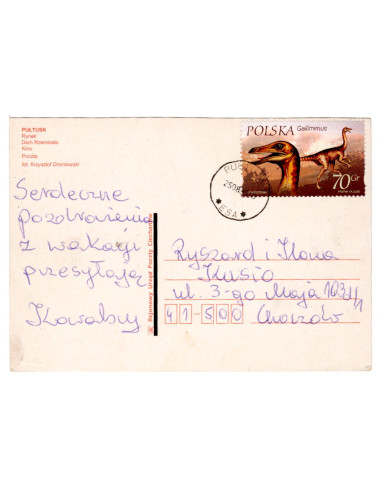 PUŁTUSK
Rynek
Dom Rzemiosła
Kino
Poczta
fot. Krzysztof Drozdowski
POLSKA Gallimimus
70 Gr
PU
250
ESA
Serdeczne
pozdrowienia
z wakacji
przesyłają
Kowalscy
Rejonowy Urząd Poczty Ciechanów
Ryszard i Ilona
Kusio
ul. 3-go Maja 103H/1
41-500 Chorzów